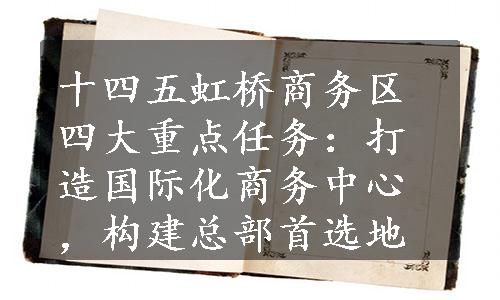 十四五虹桥商务区
四大重点任务：打
造国际化商务中心
，构建总部首选地